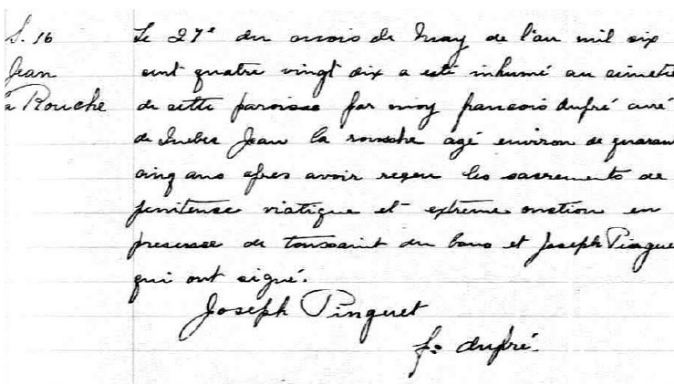 S. 16
Jean
la Rouche
Le 27e du mois de May de l'an mil six
cent quatre vingt dix a esté inhumé au cimetie
de cette paroisse par moy francois dupré curé
de Quebec Jean la rousche agé environ de quaran
cinq ans apres avoir reçeu les sacrements de
penitense viatique et extreme onction en
presence de toussaint du bano et Joseph Pingue
qui ont signé.
Joseph Pinguet
fs dupré.